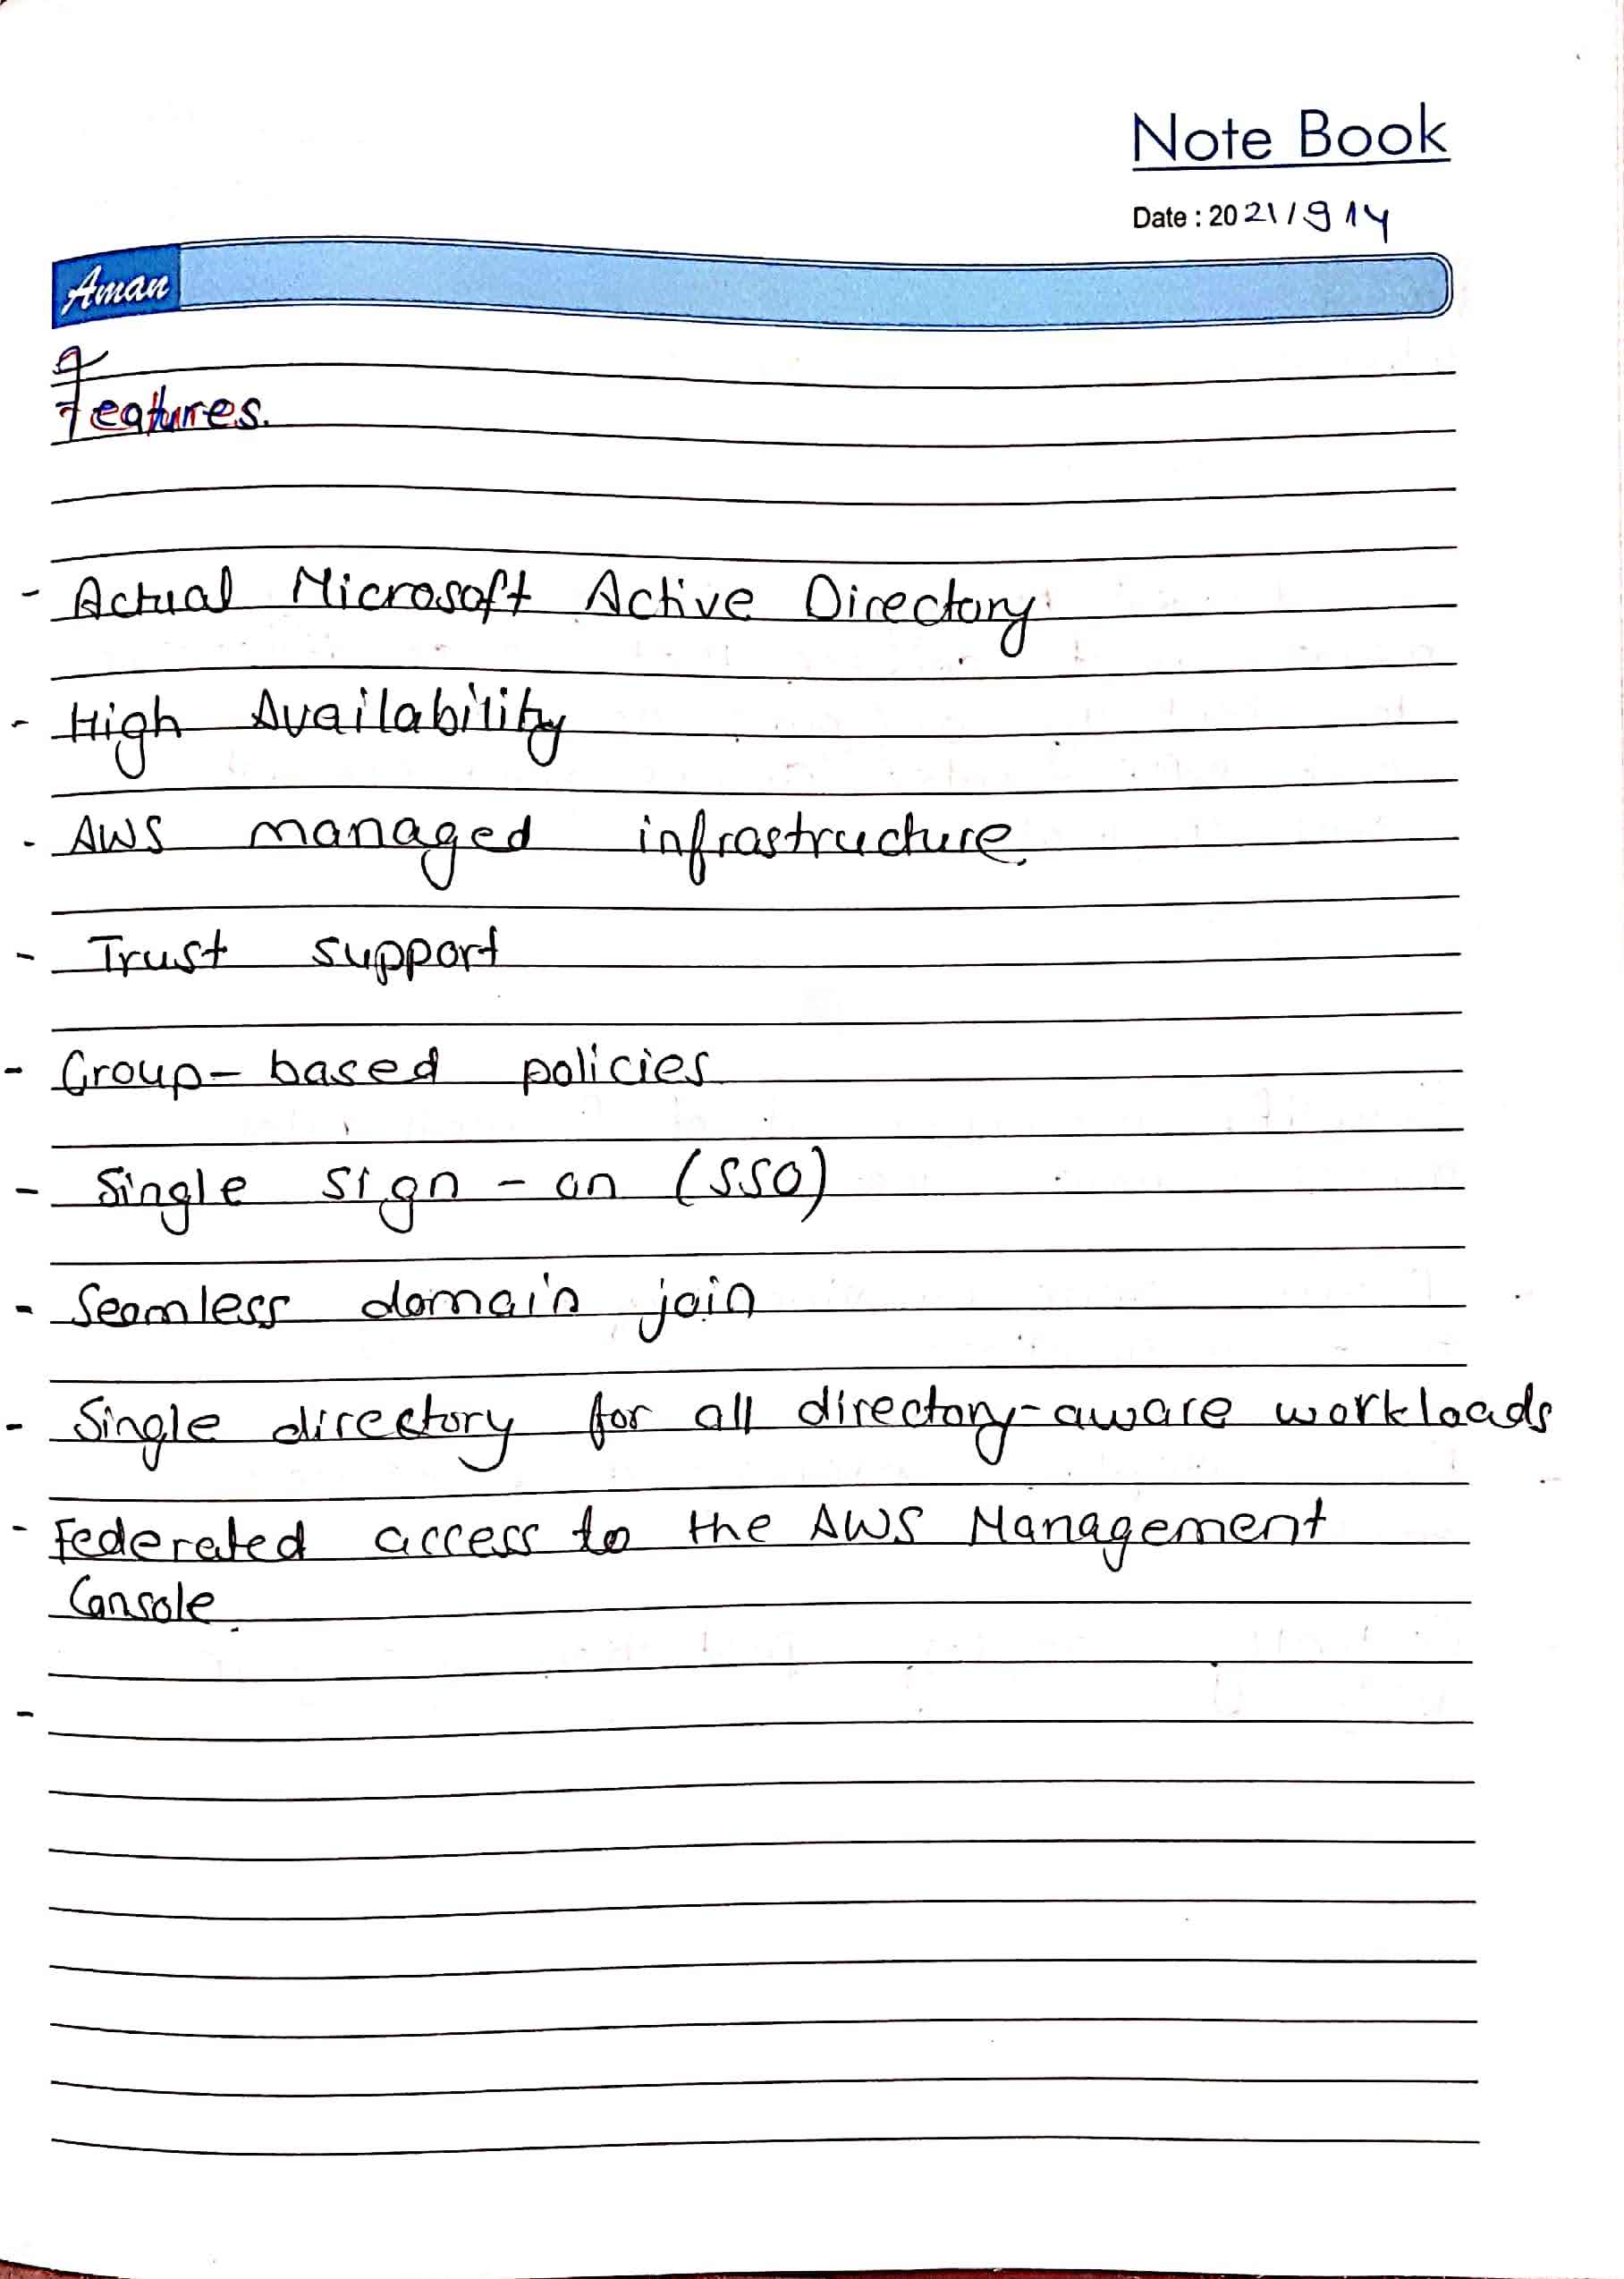 Note Book
Date : 2021/9/4
Aman
Features.
- Actual Microsoft Active Directory
- High Availability
- AWS managed infrastructure.
- Trust support
- Group-based policies
- Single sign-on (SSO)
- Seamless domain join
- Single directory for all directory-aware workloads
- Federated access to the AWS Management
Console.
-